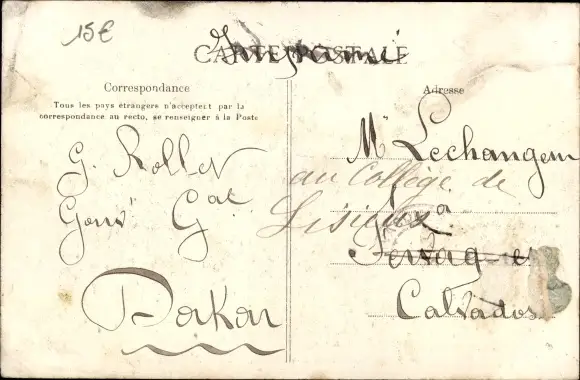 15€
CARTE POSTALE
Correspondance
Tous les pays étrangers n'acceptent pas la
correspondance au recto, se renseigner à la Poste
G. Rollet
Gouvt Gal
Dakar
Adresse
Mr Lechangeur
au Collège de
Lisieux
à
Calvados